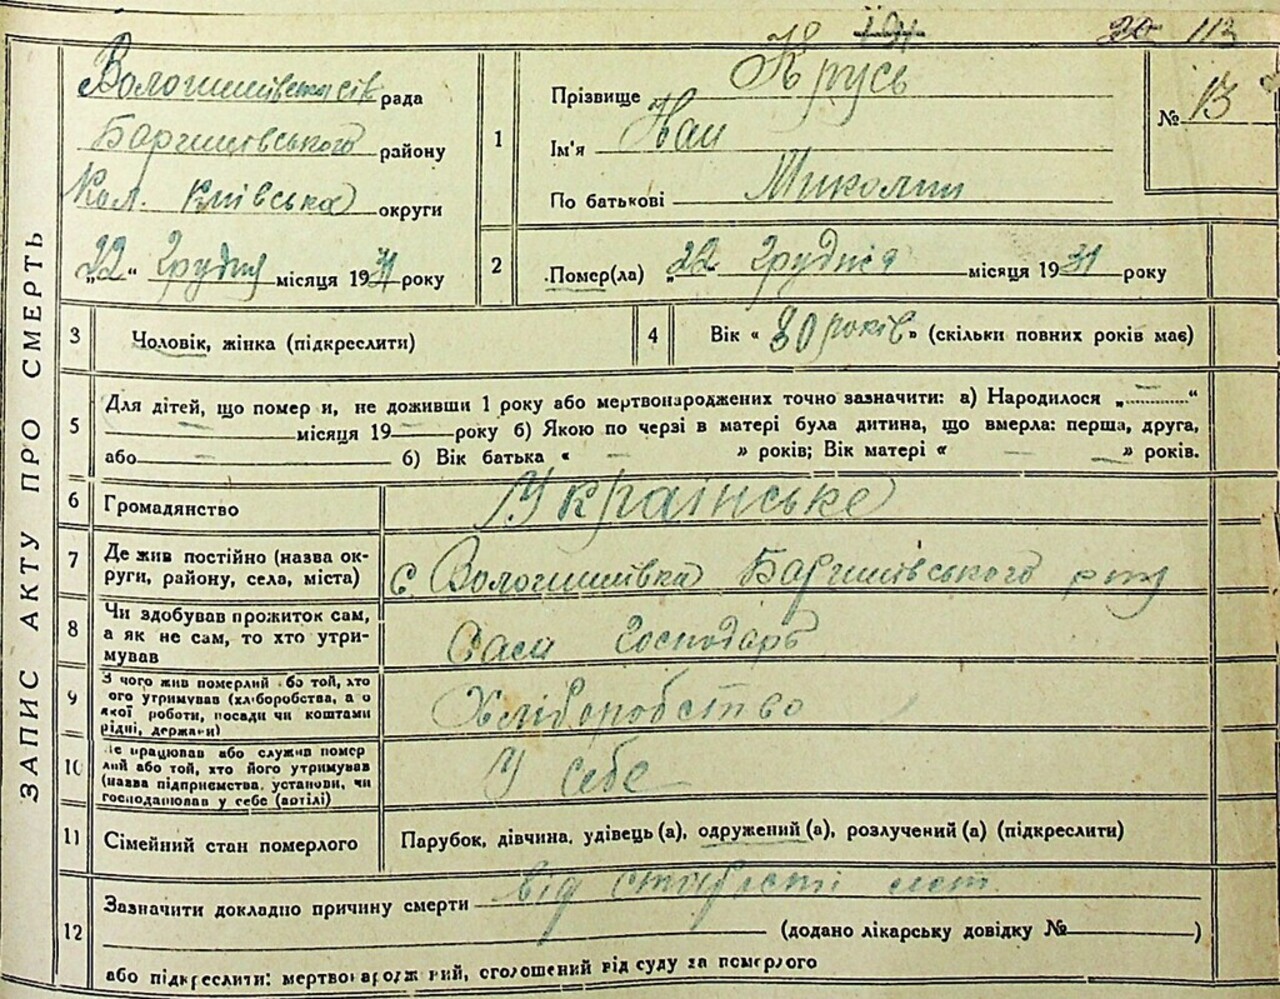 20 113
ЗАПИС АКТУ ПРО СМЕРТЬ
рада
Баришівського району
Кол. Київська округи
„22“ Грудня місяця 1931 року
1
Прізвище Крусь
Ім'я
По батькові
№ 13
2
Помер(ла) „22 Грудня місяця 1931 року
3
Чоловік, жінка (підкреслити)
4
Вік « 80 років» (скільки повних років має)
5
Для дітей, що помер и, не доживши 1 року або мертвонароджених точно зазначити: а) Народилося „ “
місяця 19 року б) Якою по черзі в матері була дитина, що вмерла: перша, друга,
або б) Вік батька « » років; Вік матері « » років.
6
Громадянство Українське
7
Де жив постійно (назва ок-
руги, району, села, міста)
с Баришівського
8
Чи здобував прожиток сам,
а як не сам, то хто утри-
мував
Господарь
9
З чого жив померлий або той, хто
ого утримував (хліборобства, а о
якої роботи, посади чи коштами
рідні, держави)
Хліборобство
10
Де працював або служив помер
лий або той, хто його утримував
(назва підприємства, установи, чи
господарював у себе (артілі)
У себе
11
Сімейний стан померлого
Парубок, дівчина, удівець(а), одружений(а), розлучений(а) (підкреслити)
12
Зазначити докладно причину смерти від старості лет
(додано лікарську довідку № )
або підкреслити: мертвонароджений, оголошений від суду за померлого